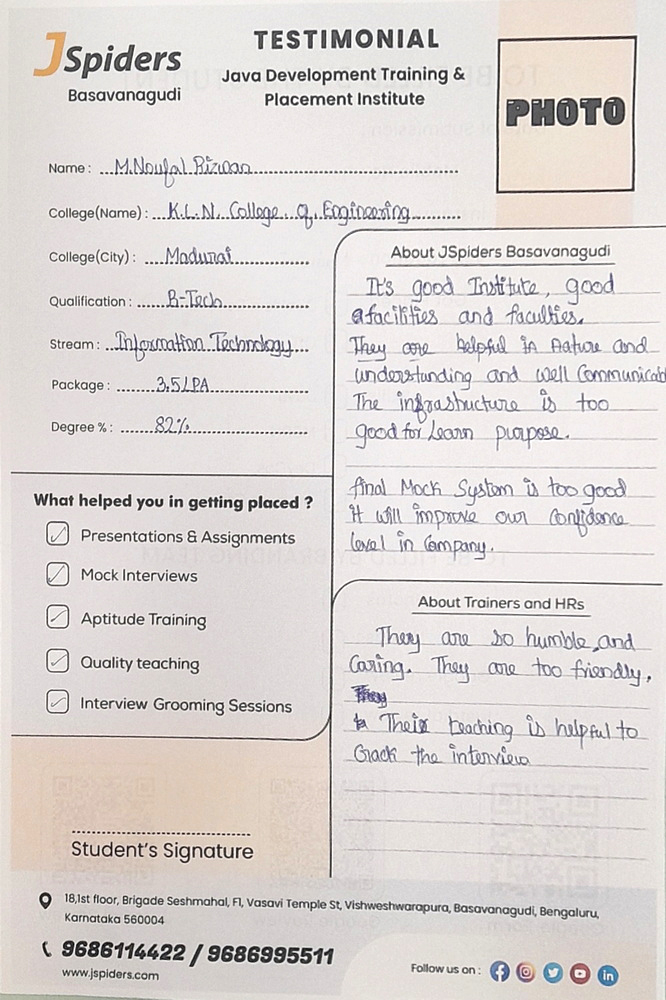 JSpiders
Basavanagudi
TESTIMONIAL
Java Development Training &
Placement Institute
PHOTO
Name : M.Noufal Rizwan
College(Name) : K.L.N. College of Engineering
College(City) : Madurai
Qualification : B-Tech
Stream : Information Technology
Package : 3.5LPA
Degree % : 82%
What helped you in getting placed ?
Presentations & Assignments
Mock Interviews
Aptitude Training
Quality teaching
Interview Grooming Sessions
Student's Signature
About JSpiders Basavanagudi
It's good Institute, good
facilities and faculties.
They are helpful in nature and
understanding and well Communicabl
The infrastructure is too
good for Learn purpose.
final Mock System is too good
it will improve our Confidence
level in Company.
About Trainers and HRs
They are so humble, and
Caring. They are too friendly.
Their teaching is helpful to
Crack the interview
18,1st floor, Brigade Seshmahal, F1, Vasavi Temple St, Vishweshwarapura, Basavanagudi, Bengaluru,
Karnataka 560004
9686114422 / 9686995511
www.jspiders.com
Follow us on :